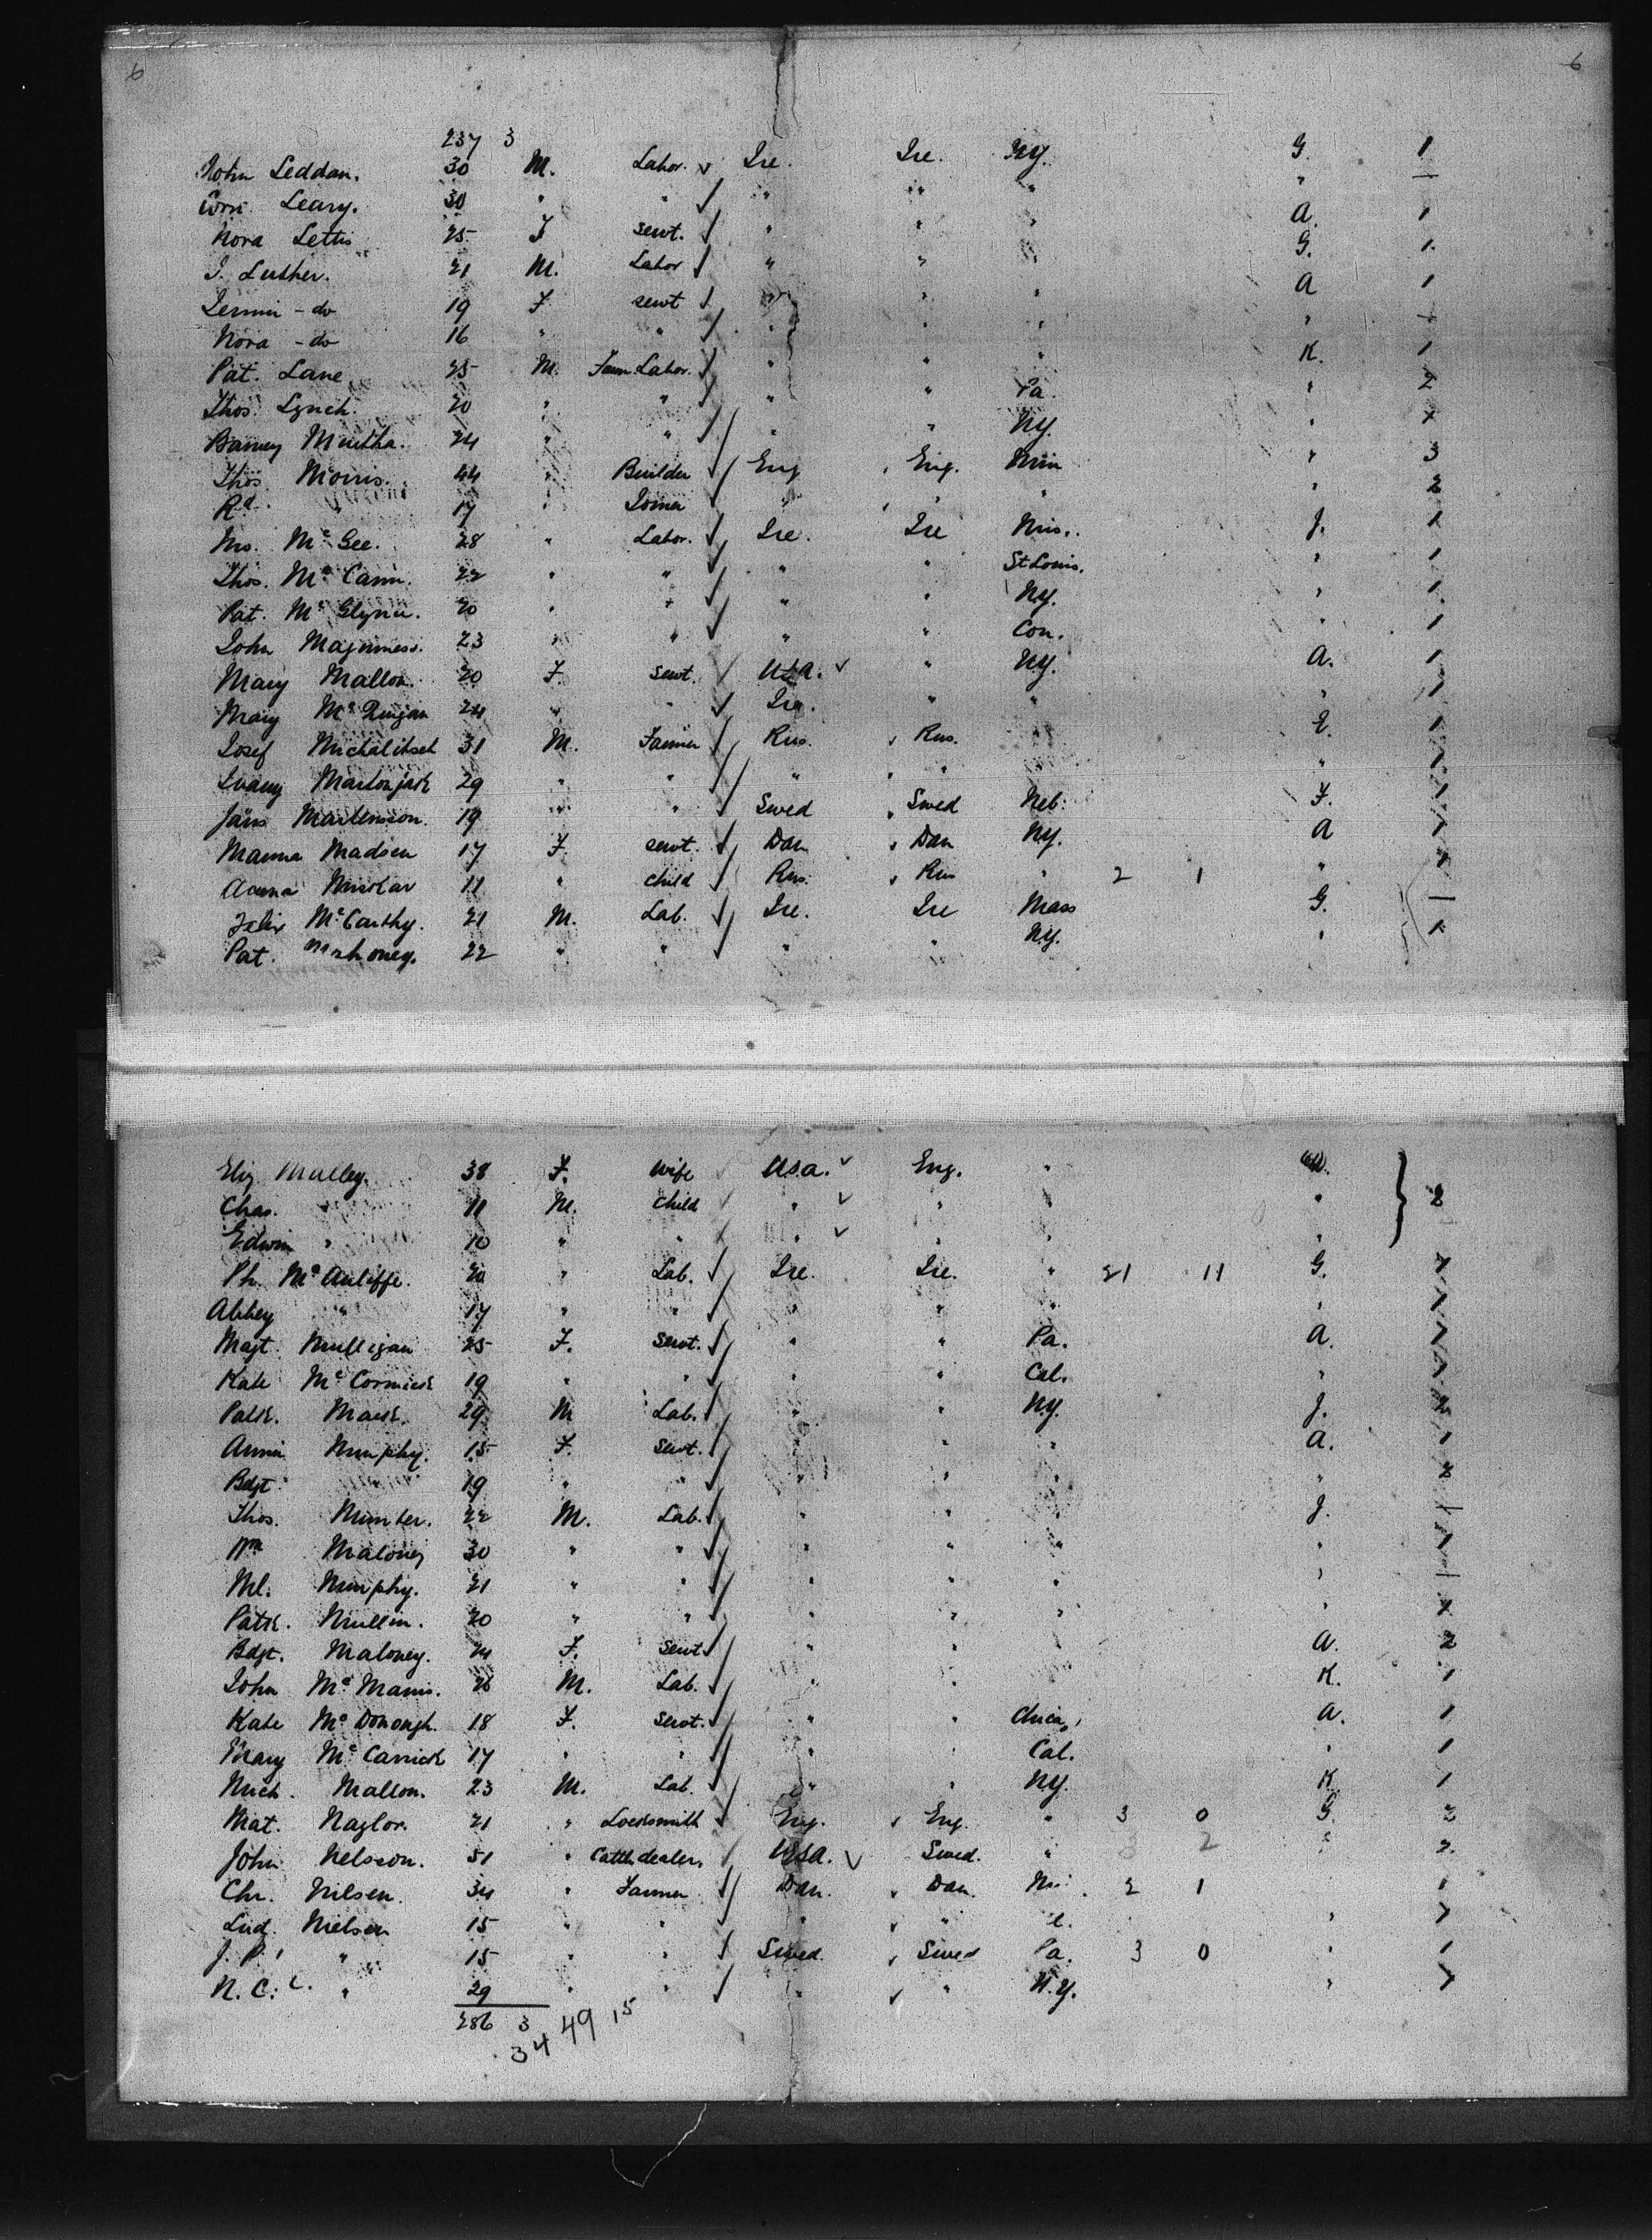 6 6
237 3
John Leddan. 30 M. Labor. Ire. Ire. NY. G. 1
Corn. Leary. 30 " " " " " " 1
Nora Lettis 25 F servt. " " " A. 1
J. Luther. 21 M. Labor " " " G. 1
- do 19 F servt " " " A 1
Nora - do 16 " " " " " " 1
Pat. Lane 25 M. Farm Labor. " " " K. 1
Thos. Lynch. 20 " " " " Pa. " 2
Barney Murtha. 24 " " " " NY. " 1
Thos. Morris. 44 " Builder Eng Eng. Min " 3
Rd. " 17 " Joiner " " " " 2
Ms. McGee. 28 " Labor. Ire. Ire Mis. J. 1
Thos. McCann. 22 " " " " St Louis. " 1
Pat. McGlynn. 20 " " " " NY. " 1
John Maginness. 23 " " " " Con. " 1
Mary Mallon. 20 F. servt. USA. " NY. A. 1
Mary 24 " " Ire. " " " 1
Josef Michalitsch 31 M. Farmer Rus. Rus. " E. 1
29 " " " " " " 1
Jäns Martensson. 19 " " Swed Swed Neb. F. 1
Manna Madsen 17 F. servt. Dan Dan NY. A 1
11 " child Rus. Rus " 2 1 " 1
Felix McCarthy. 21 M. Lab. Ire. Ire Mass G. 1
Pat. Mahoney. 22 " " " " NY. " 1
Eliz Malley. 38 F. wife USA. Eng. " } 2
Chas. " 11 M. child " " " "
Edwin " 10 " " " " " "
Ph. McAuliffe. 20 " Lab. Ire. Ire. " 21 11 G. 1
Abbey " 17 " " " " " " 1
Magt. Mulligan 25 F. servt. " " Pa. A. 1
Kate McCormick 19 " " " " Cal. " 1
Patk. Mack. 29 M Lab. " " NY. J. 2
Annie Murphy. 15 F. servt. " " " A. 1
Bdgt " 19 " " " " " " 2
Thos. Munter. 22 M. Lab. " " " J. 1
Wm Maloney 30 " " " " " " 1
Ml. Murphy. 21 " " " " " " 1
Patk. Mullin. 20 " " " " " " 1
Bdgt. Maloney. 24 F. servt " " " A. 2
John McManus. 26 M. Lab. " " " K. 1
Kate McDonough. 18 F. servt. " " Chica. A. 1
Mary McCarrick 17 " " " " Cal. " 1
Mich. Mallon. 23 M. Lab. " " NY. K 1
Mat. Naylor. 21 " Locksmith Eng. Eng. " 3 0 G. 2
John Nelsson. 51 " Cattle dealer. USA. Swed. " 3 2 " 2.
Chr. Nilsen. 34 " Farmer Dan. Dan. 2 1 " 1
Lud. Nielsen 15 " " " " " 1
J. P. " 15 " " Swed. Swed Pa. 3 0 " 1
N. C. " 29 " " " " N.Y. " 1
286 3
34 49 15